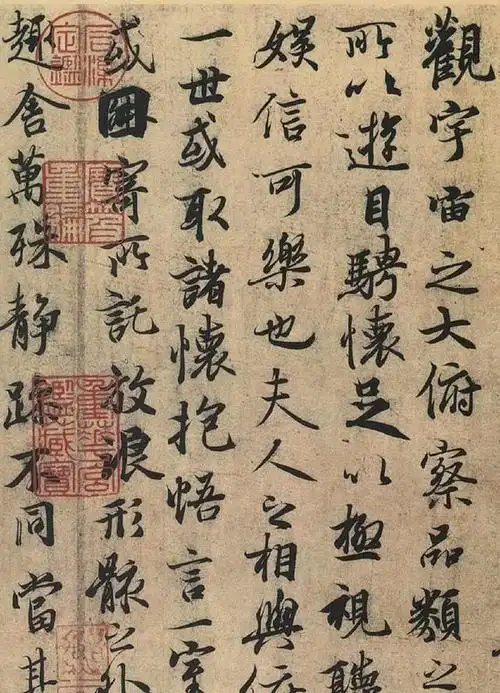 觀宇宙之大俯察品類之
所以遊目騁懷足以極視聽
娛信可樂也夫人之相與俯
一世或取諸懷抱悟言一室
或因寄所託放浪形骸之外
趣舍萬殊静躁不同當其